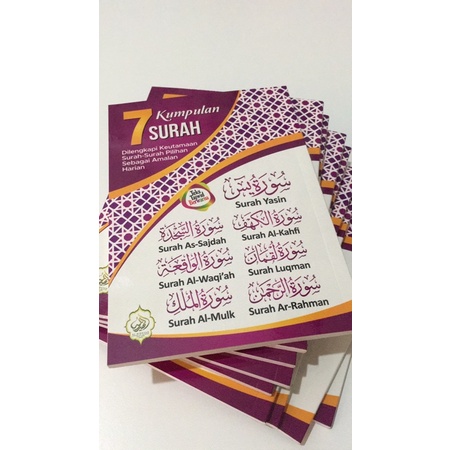 7 Kumpulan
SURAH
Dilengkapi Keutamaan
Surah-Surah Pilihan
Sebagai Amalan
Harian
سورة يس
Surah Yasin
سورة السجدة
Surah As-Sajdah
سورة الكهف
Surah Al-Kahfi
سورة الواقعة
Surah Al-Waqi'ah
سورة لقمان
Surah Luqman
سورة الملك
Surah Al-Mulk
سورة الرحمن
Surah Ar-Rahman